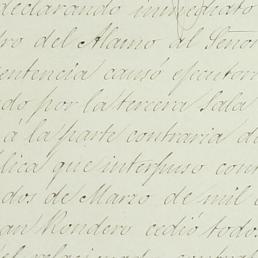 declarando inmediato
ro del Alamo al Señor
entencia causó ejecutori
do por la tercera Sala
á la parte contraria d
lica que interpuso con
dos de Marzo de mil
an Rondero cedió todo